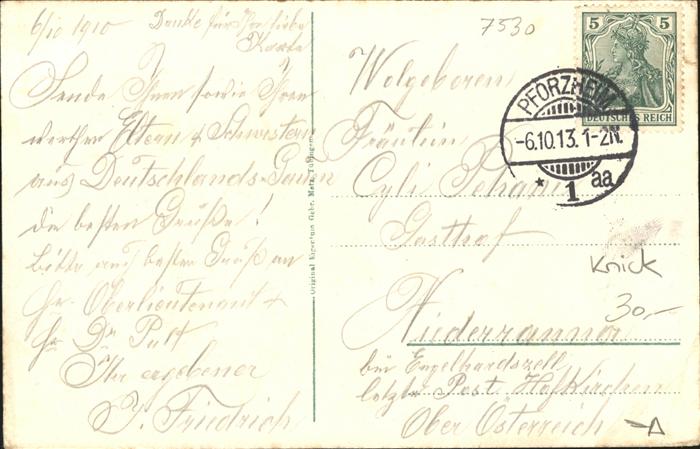 6/10 1910 Danke für Ihre liebe
Karte
Sende Ihnen sowie Ihren
werthen Eltern & Schwistern
aus Deutschlands Gauen
die besten Grüße!
bitte auch besten Gruß an
Hr. Oberlieutenant &
Hr. Dr.
Ihr ergebener
J. Friedrich
Original Eigentum Gebr. Metz, Tübingen
7530
5 5
DEUTSCHES REICH
PFORZHEIM
-6.10.13. 1-2N.
* 1 aa
Wolgeboren
Fräulein
Cyli
Gasthof
Knick
30,-
Niederranna
bei Engelhardszell
letzte Post Hofkirchen
Ober Österreich